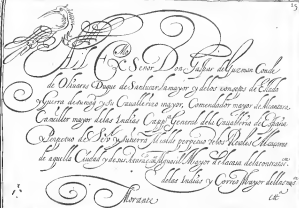 Al Ex.mo
Señor Don Gaspar de Guzman Conde
de Olivares Duque de Sanlucar lamayor y delos consejos de Estado
y Guerra de su Mag. y su Cavallerizo mayor, Comendador mayor de Alcantara
Canciller mayor delas Indias Capp. General dela Cavalleria de España
Perpetuo de Sevilla Alcaide perpetuo delos Reales Alcaçares
de aquella Ciudad y Mayor dela
delas Indias y Correo Mayor
Morante